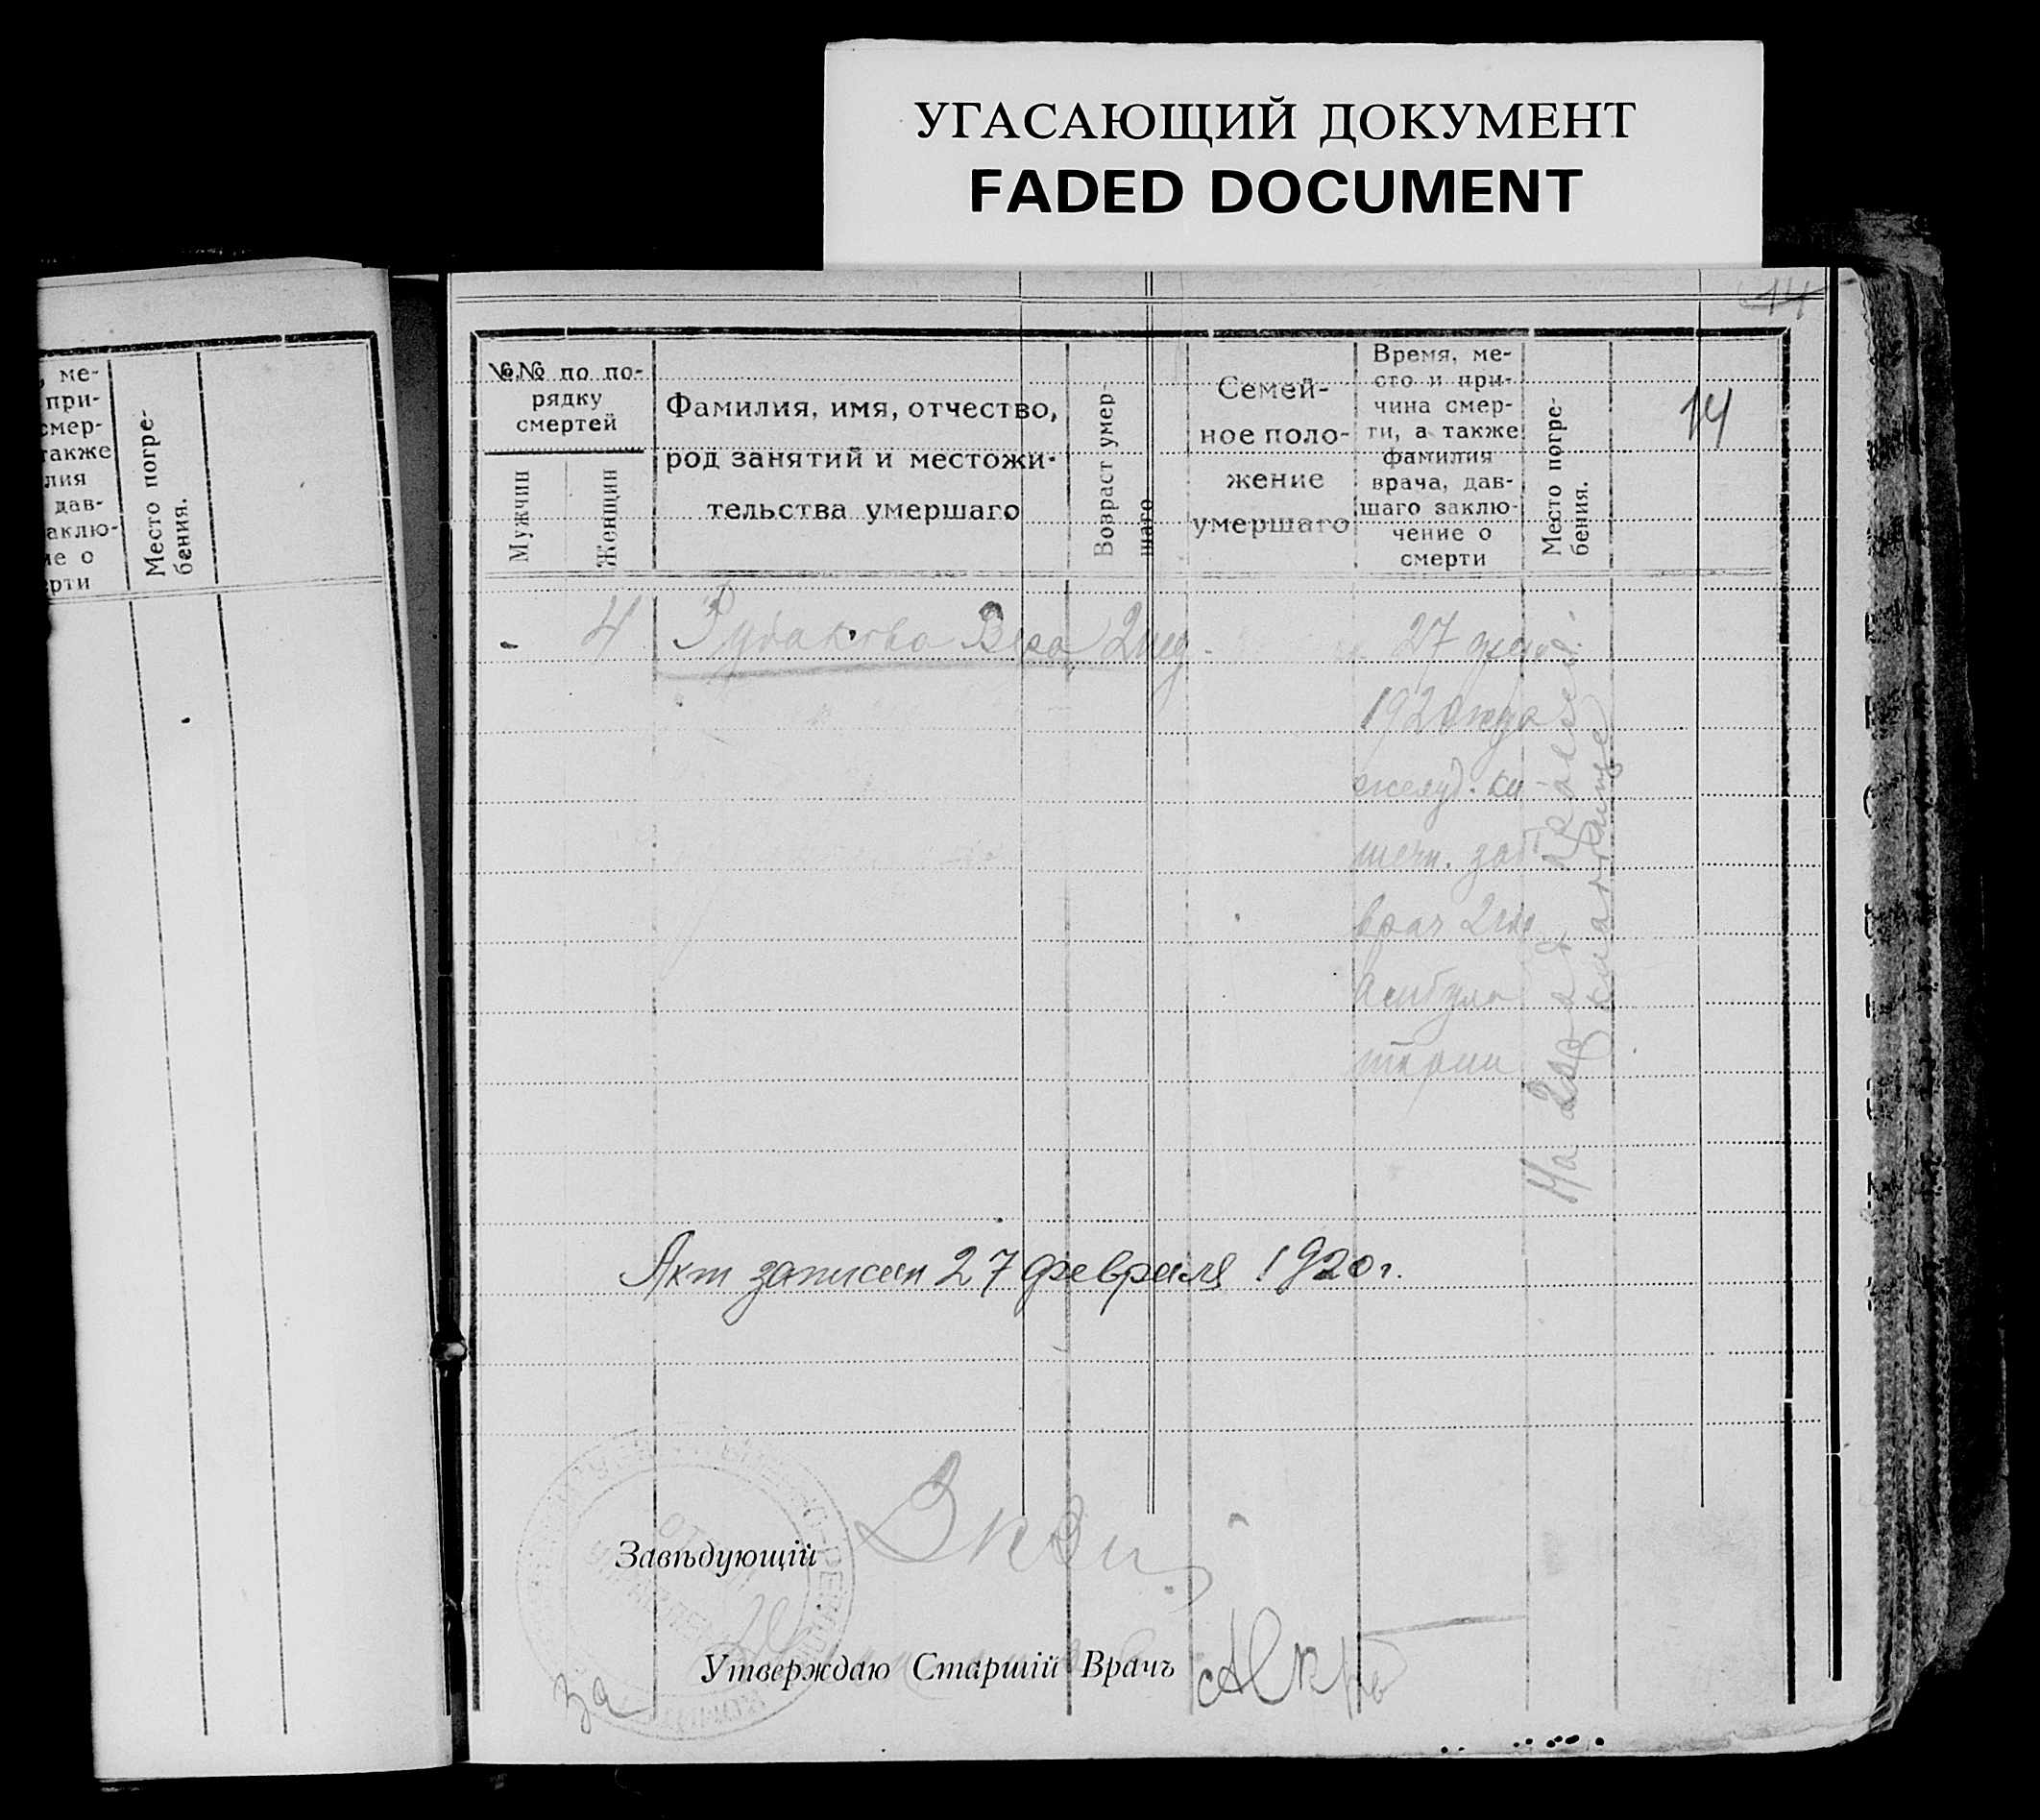 УГАСАЮЩИЙ ДОКУМЕНТ
FADED DOCUMENT
, ме-
при-
смер-
также
лия
дав-
аклю-
ие о
ерти
Место погре-
бения.
14
№№ по по-
рядку
смертей
Мужчин
Женщин
Фамилия, имя, отчество,
род занятий и местожи-
тельства умершаго
Возраст умер-
шаго
Семей-
ное поло-
жение
умершаго
Время, ме-
сто и при-
чина смер-
ти, а также
фамилия
врача, дав-
шаго заклю-
чение о
смерти
Место погре-
бения.
14
- 4 Рудакова Вера 2 нед. 27 февр.
1920 года
желуд. ки-
шечн. заб.
врач 2
Амбула
тории
На
кладбище
Акт записан 27 февраля 1920 г.
Завѣдующій
за Утверждаю Старшій Врачъ